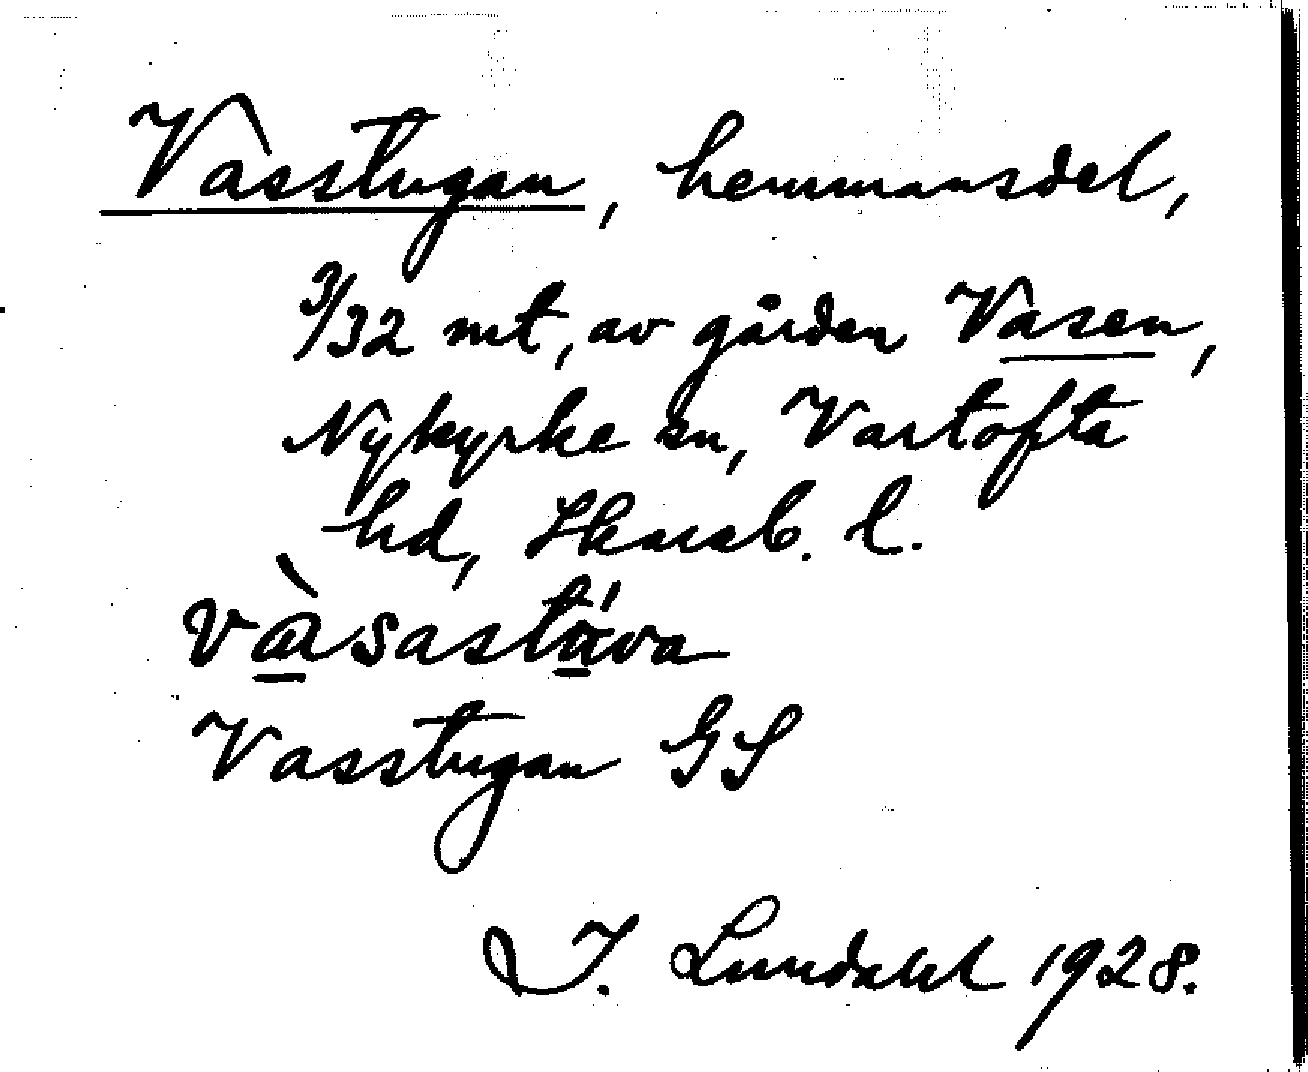 Vasstugan, hemmansdel,
3/32 mt, av gården Vasen,
Nykyrke sn, Vartofta
hd, Skarab. l.
Vasstugan GS
I. Lundahl 1928.